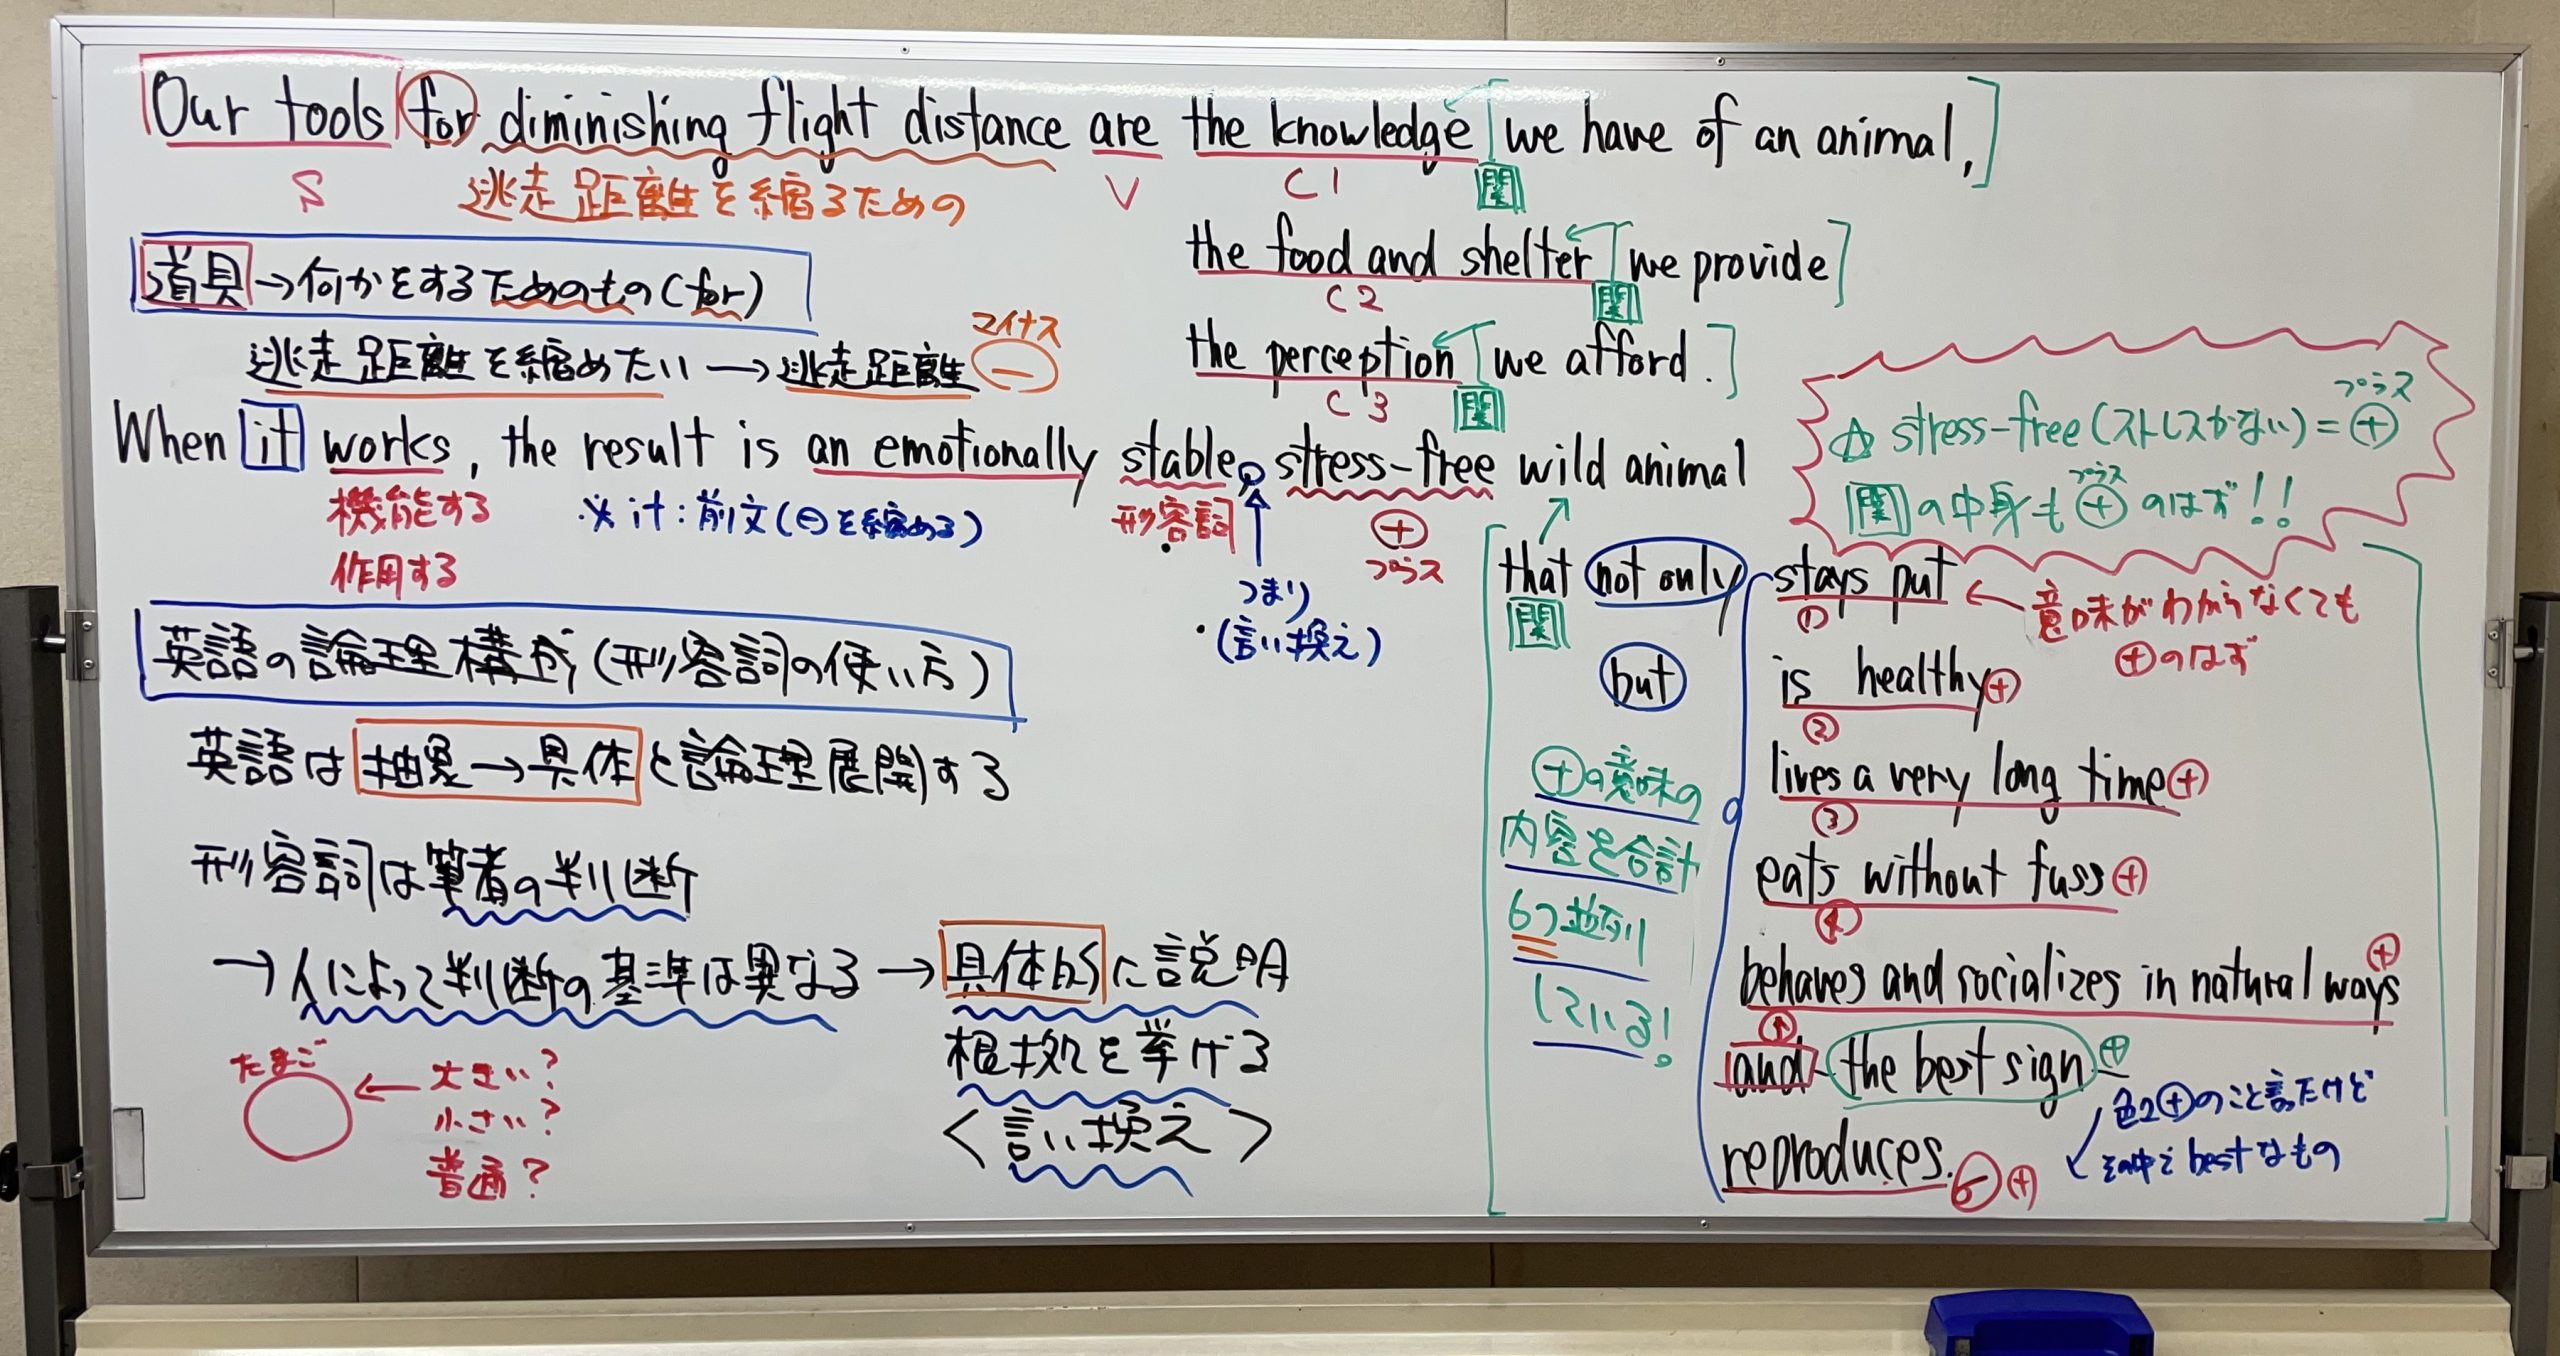 Our tools for diminishing flight distance are the knowledge [we have of an animal,]
S 逃走距離を縮るための V C1 関
the food and shelter [we provide]
C2 関
道具→何かをするためのもの(for)
マイナス
逃走距離を縮めたい→逃走距離 ⊖
the perception [we afford.]
C3 関
When it works, the result is an emotionally stable, stress-free wild animal
機能する
作用する
※it:前文(⊖を縮める)
形容詞
⊕
プラス
つまり
・(言い換え)
プラス
☆ stress-free(ストレスがない)=⊕
プラス
関の中身も⊕のはず!!
that not only stays put
関 ①
←意味がわからなくても
⊕のはず
but
is healthy⊕
②
lives a very long time⊕
③
eats without fuss⊕
④
behaves and socializes in natural ways ⊕
and–the best sign⊕–
reproduces. ⑥⊕
⊕の意味の
内容を合計
6つ並列
している!
⊕のこと言たけど
その中で bestなもの
英語の論理構成(形容詞の使い方)
英語は抽象→具体と論理展開する
形容詞は筆者の判断
→人によって判断の基準は異なる→具体的に説明
根拠を挙げる
<言い換え>
たまご
←大きい?
小さい?
普通?